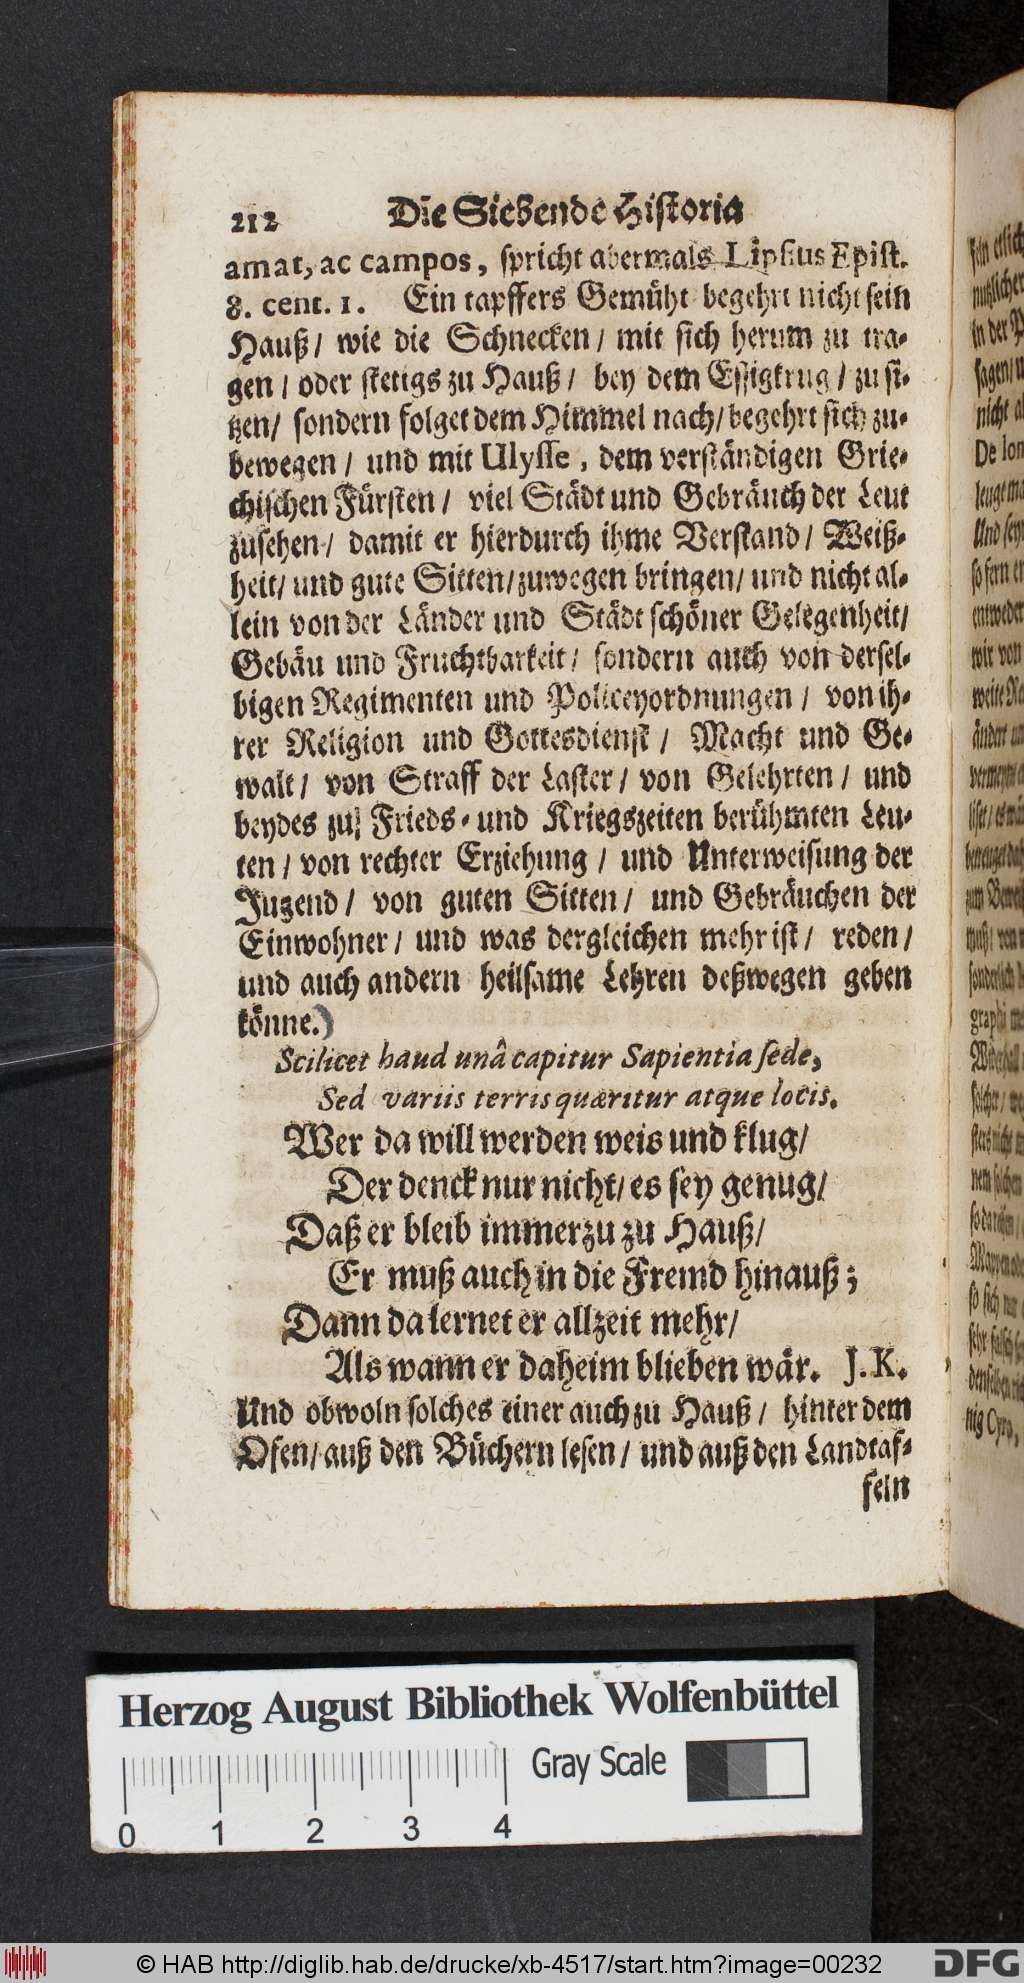 212 Die Siebende Historia
amat, ac campos, spricht abermals Lipsius Epist.
8. cent. 1. Ein tapffers Gemüht begehrt nicht sein
Hauß/ wie die Schnecken/ mit sich herum zu tra-
gen/ oder stetigs zu Hauß/ bey dem Essigkrug/ zu si-
tzen/ sondern folget dem Himmel nach/ begehrt sich zu-
bewegen/ und mit Ulysse, dem verständigen Grie-
chischen Fürsten/ viel Städt und Gebräuch der Leut
zusehen/ damit er hierdurch ihme Verstand/ Weiß-
heit/ und gute Sitten/ zuwegen bringen/ und nicht al-
lein von der Länder und Städt schöner Gelegenheit/
Gebäu und Fruchtbarkeit/ sondern auch von dersel-
bigen Regimenten und Policeyordnungen/ von ih-
rer Religion und Gottesdienst/ Macht und Ge-
walt/ von Straff der Laster/ von Gelehrten/ und
beydes zu Frieds- und Kriegszeiten berühmten Leu-
ten/ von rechter Erziehung/ und Unterweisung der
Jugend/ von guten Sitten/ und Gebräuchen der
Einwohner/ und was dergleichen mehr ist/ reden/
und auch andern heilsame Lehren deßwegen geben
könne.)
Scilicet haud unâ capitur Sapientia sede,
Sed variis terris quæritur atque locis.
Wer da will werden weis und klug/
Der denck nur nicht/ es sey genug/
Daß er bleib immerzu zu Hauß/
Er muß auch in die Fremd hinauß;
Dann da lernet er allzeit mehr/
Als wann er daheim blieben wär. J. K.
Und obwoln solches einer auch zu Hauß/ hinter dem
Ofen/ auß den Büchern lesen/ und auß den Landtaf-
feln
Herzog August Bibliothek Wolfenbüttel
Gray Scale
0 1 2 3 4
© HAB http://diglib.hab.de/drucke/xb-4517/start.htm?image=00232
DFG